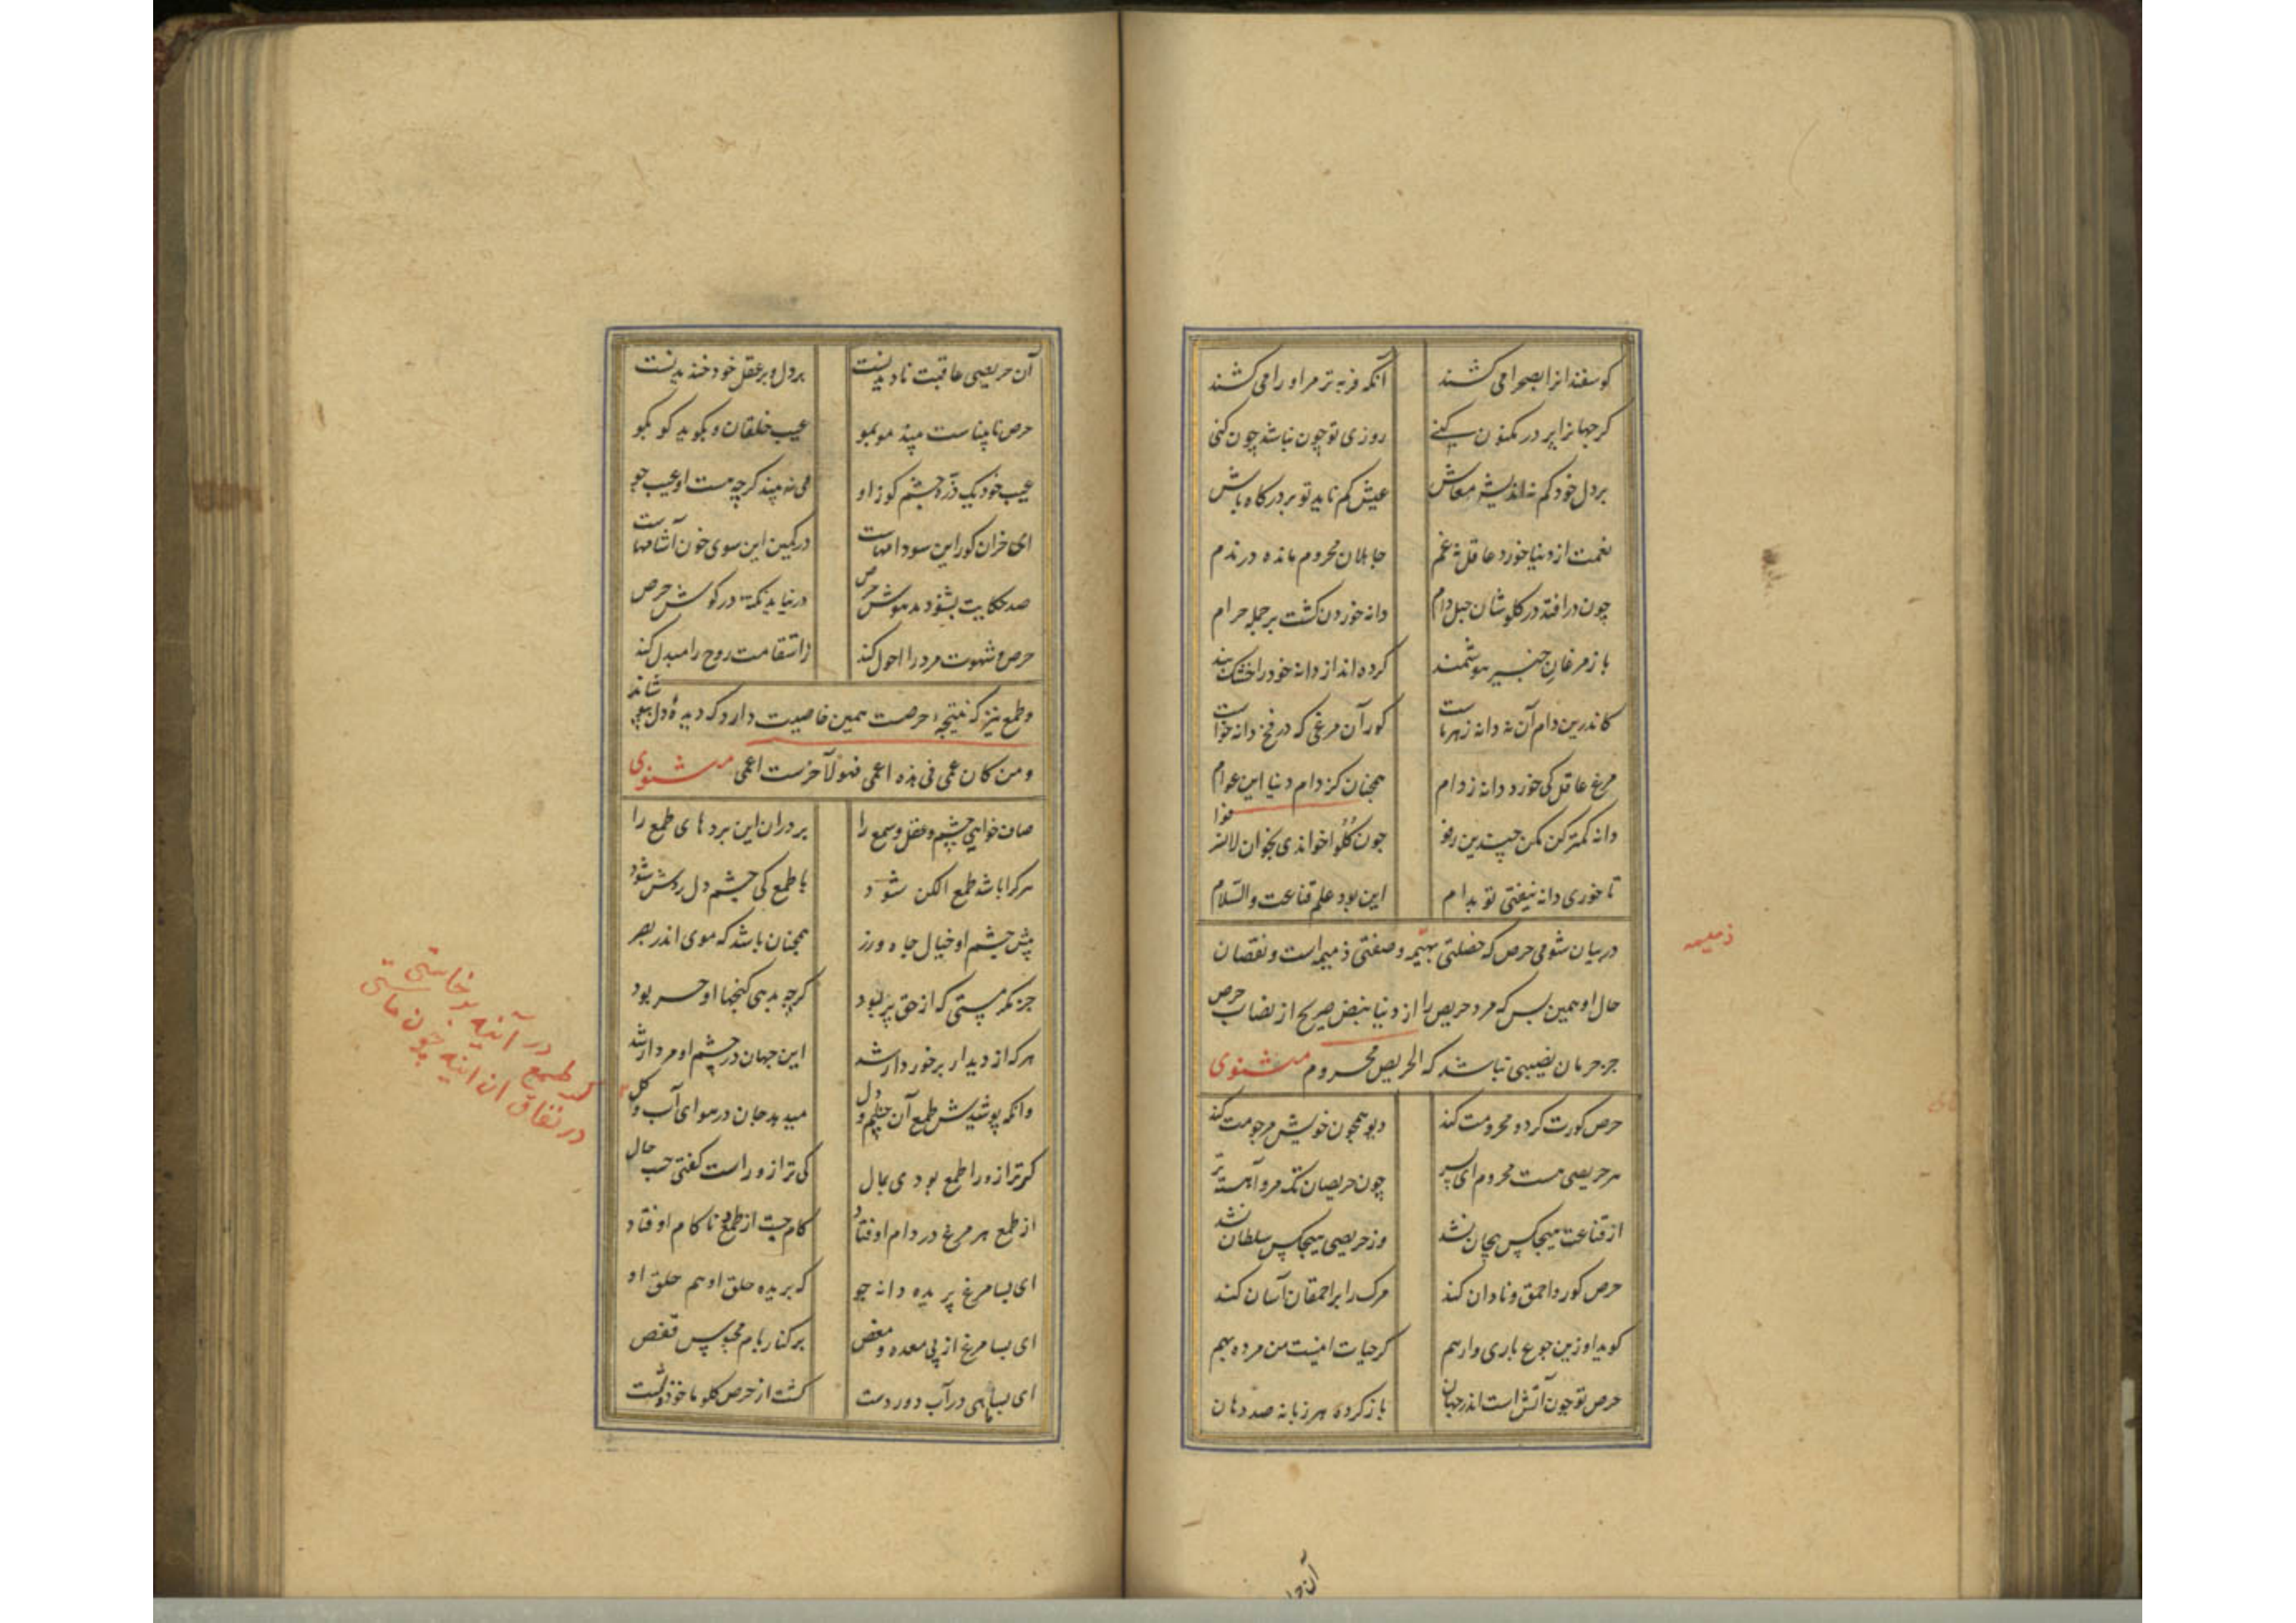 کوسفندانرا بصحرا می کشند آنکه فربه تر مر او را می کشند
کر جهانرا پر در مکنون کنے روزی تو چون نباشد چون کنی
بر دل خود کم نه اندیشه معاش عیش کم ناید تو بر درکاه باش
نعمت از دنیا خورد عاقل نه غم جاهلان محروم مانده در ندم
چون در افتد در کلوشان حبل دام دانه خوردن کشت بر جمله حرام
باز مرغان خبیر هوشمند کرده اند از دانه خود را خشک بند
کاندرین دام آن نه دانه زهرهاست کور آن مرغی که در فخ دانه خواست
مرغ عاقل کی خورد دانه ز دام همچنان کز دام دنیا این عوام
دانه کمتر کن مکن چندین رفو چون کلوا خواندی بخوان لاتسرفوا
تا خوری دانه نیفتی تو بدام این بود علم قناعت والسّلام
در بیان شومی حرص که خصلتی بهیمه و صفتی ذمیمه است و نقصان
حال او همین بس که مرد حریص را از دنیا بنص صریح از نصاب حرص
جز حرمان نصیبی نباشد که الحریص محروم مثنوی
حرص کورت کرد و محرومت کند دیو همچون خویش مرجومت کند
هر حریصی هست محروم ای پسر چون حریصان تک مرو آهسته تر
از قناعت هیچکس بیجان نشد وز حریصی هیچکس سلطان نشد
حرص کور و احمق و نادان کند مرک را بر احمقان آسان کند
کوید او زین جوع باری وارهم کر حیات اینست من مرده بهم
حرص تو چون آتش است اندر جهان باز کرده هر زبانه صد دهان
ذمیمه
آن حریصی عاقبت نادیدنست بر دل و بر عقل خود خندیدنست
حرص نابیناست بیند مو بمو عیب خلقان و بکوید کو بکو
عیب خود یک ذره چشم کور او می نه بیند کرچه هست او عیب جو
ای خران کور این سو دامهاست در کمین این سوی خون آشامهاست
صد حکایت بشنود مدهوش حرص در نیاید نکتهٔ در کوش حرص
حرص و شهوت مرد را احول کند ز استقامت روح را مبدل کند
و طمع نیز که نتیجهٔ حرصست همین خاصیت دارد که دیدهٔ دل بپوشاند
و من کان عمی فی هذه اعمی فهو لآخرست اعمی مثنوی
صاف خواهی چشم و عقل و سمع را بر دران این بردهای طمع را
هر کرا باشد طمع الکن شود با طمع کی چشم دل روشن شود
پیش چشم او خیال جاه و زر همچنان باشد که موی اندر بصر
جز مکر مستی که از حق پر بود کرچه بدهی کنجها او حر بود
هر که از دیدار برخوردار شد این جهان در چشم او مردار شد
وانکه پوشیدش طمع آن چشم و دل میدهد جان در هوای آب و کل
کر ترازو را طمع بودی بمال کی ترازو راست کفتی حسب حال
از طمع هر مرغ در دام اوفتاد کام جست از طمع و ناکام اوفتاد
ای بسا مرغ پریده دانه جو که بریده حلق او هم حلق او
ای بسا مرغ از پی معده و مغص بر کنار بام محبوس قفص
ای بسا ماهی در آب دوردست کشت از حرص کلو ماخوذ شست
کر طمع در آینه برخاستی
در نفاق آن آینه چون ماستی